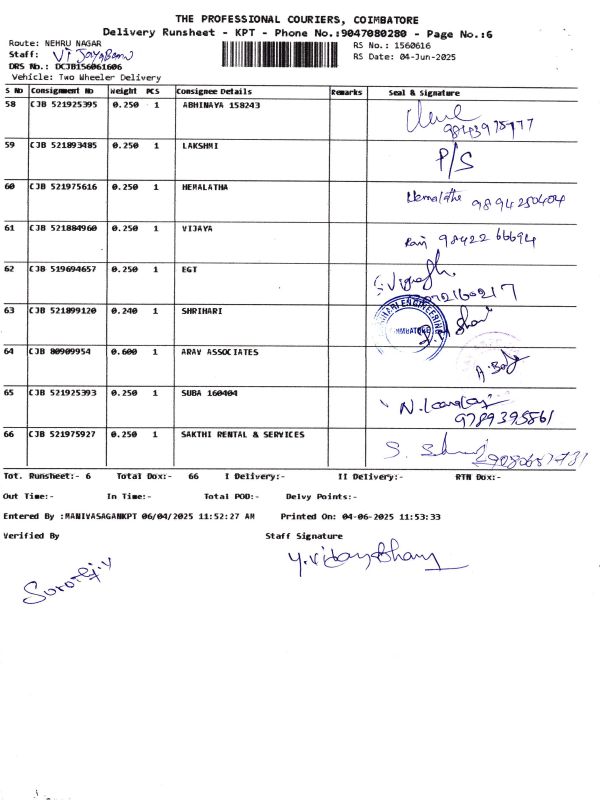 THE PROFESSIONAL COURIERS, COIMBATORE
Delivery Runsheet - KPT - Phone No.:9047080280 - Page No.:6
Route: NEHRU NAGAR
RS No.: 1560616
Staff:
RS Date: 04-Jun-2025
DRS No.: DCJB156061606
Vehicle: Two Wheeler Delivery
S No Consignment No Weight PCS Consignee Details Remarks Seal & Signature
58 CJB 521925395 0.250 1 ABHINAYA 158243
59 CJB 521893485 0.250 1 LAKSHMI P/S
60 CJB 521975616 0.250 1 HEMALATHA Hemalathe 9894250404
61 CJB 521884960 0.250 1 VIJAYA 98422 66694
62 CJB 519694657 0.250 1 EGT
63 CJB 521899120 0.240 1 SHRIHARI
64 CJB 80909954 0.600 1 ARAV ASSOCIATES
65 CJB 521925393 0.250 1 SUBA 160404 9789395861
66 CJB 521975927 0.250 1 SAKTHI RENTAL & SERVICES
Tot. Runsheet:- 6 Total Dox:- 66 I Delivery:- II Delivery:- RTN Dox:-
Out Time:- In Time:- Total POD:- Delvy Points:-
Entered By :MANIVASAGANKPT 06/04/2025 11:52:27 AM Printed On: 04-06-2025 11:53:33
Verified By Staff Signature